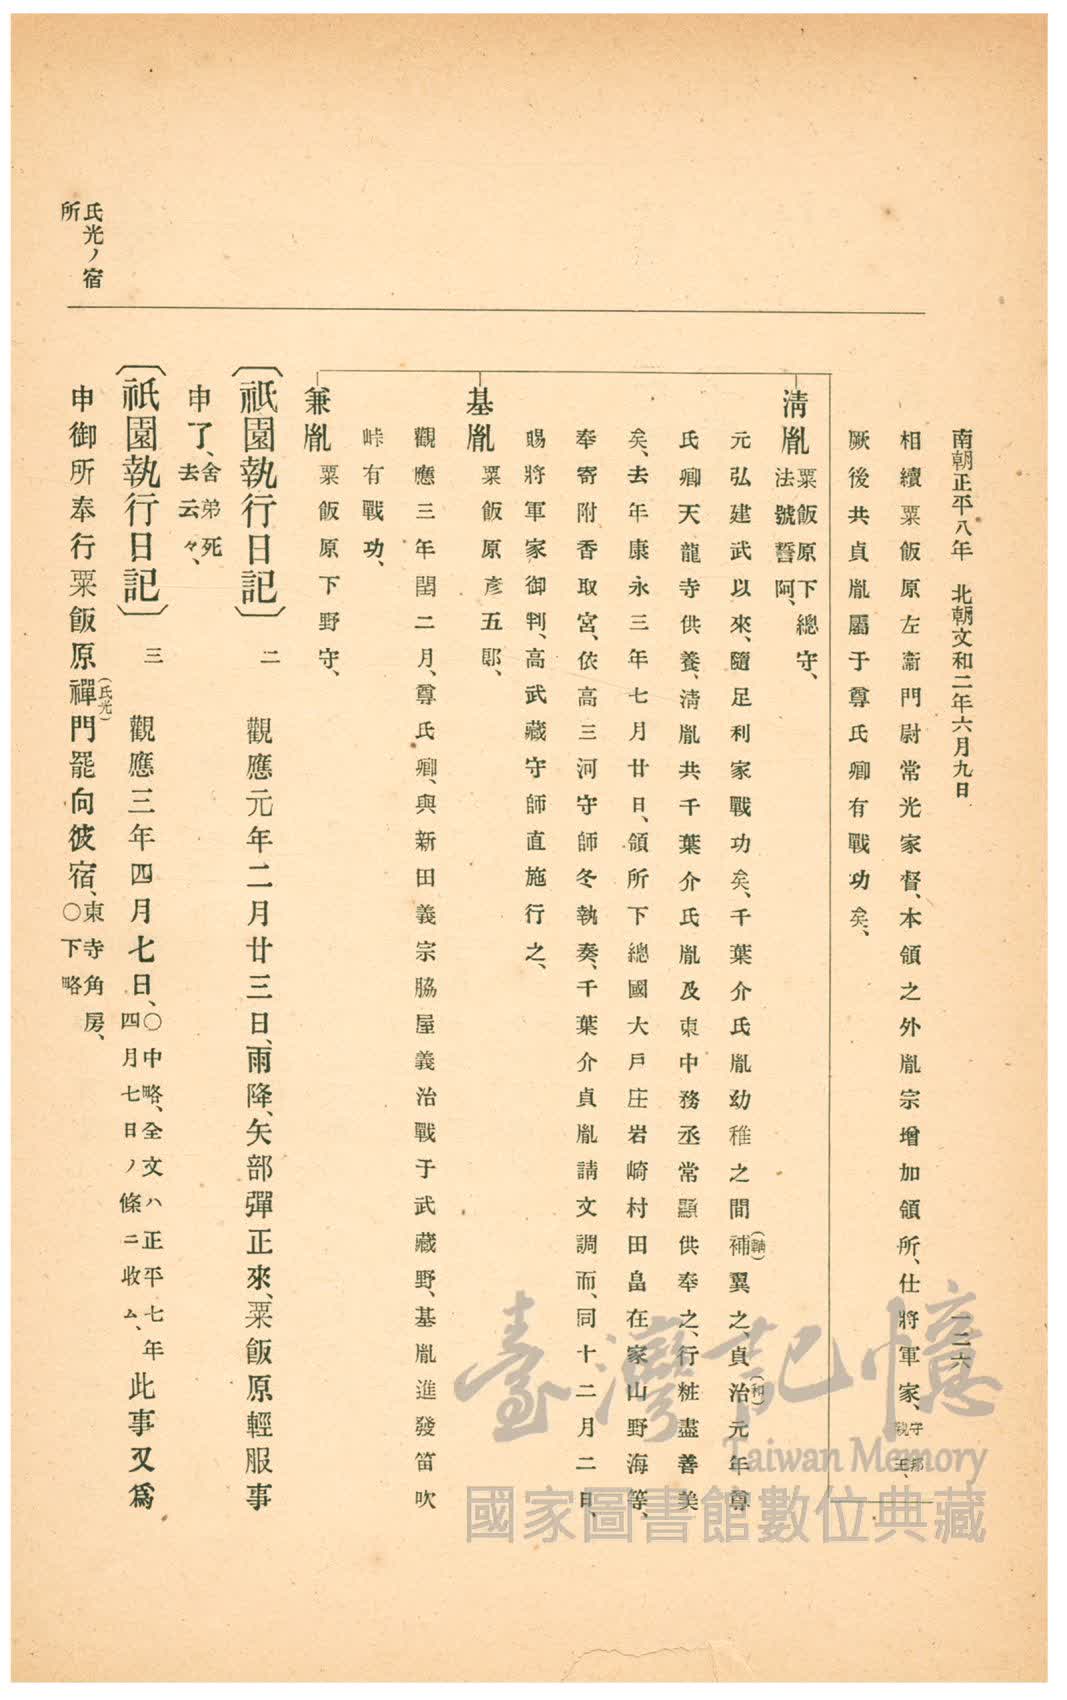 南朝正平八年　北朝文和二年六月九日
一二六
相續粟飯原左衞門尉常光家督、本領之外胤宗增加領所、仕將軍家、守邦親王、
厥後共貞胤屬于尊氏卿有戰功矣、
淸胤 粟飯原下總守、
法號誓阿、
元弘建武以來、隨足利家戰功矣、千葉介氏胤幼稚之間補(輔)翼之、貞治(和)元年尊
氏卿天龍寺供養、淸胤共千葉介氏胤及東中務丞常顯供奉之、行粧盡善美
矣、去年康永三年七月廿日、領所下總國大戶庄岩崎村田畠在家山野海等、
奉寄附香取宮、依高三河守師冬執奏、千葉介貞胤請文調而、同十二月二日、
賜將軍家御判、高武藏守師直施行之、
基胤 粟飯原彥五郞、
觀應三年閏二月、尊氏卿、與新田義宗脇屋義治戰于武藏野、基胤進發笛吹
峠有戰功、
兼胤 粟飯原下野守、
〔祇園執行日記〕 二 觀應元年二月廿三日、雨降、矢部彈正來、粟飯原輕服事
申了、舍弟死
去云々、
〔祇園執行日記〕 三 觀應三年四月七日、〇中略、全文ハ正平七年
四月七日ノ條ニ收ム、此事又爲
申御所奉行粟飯原禪門(氏光)罷向彼宿、東寺角房、
〇下略
氏光ノ宿
所
臺灣記憶
Taiwan Memory
國家圖書館數位典藏